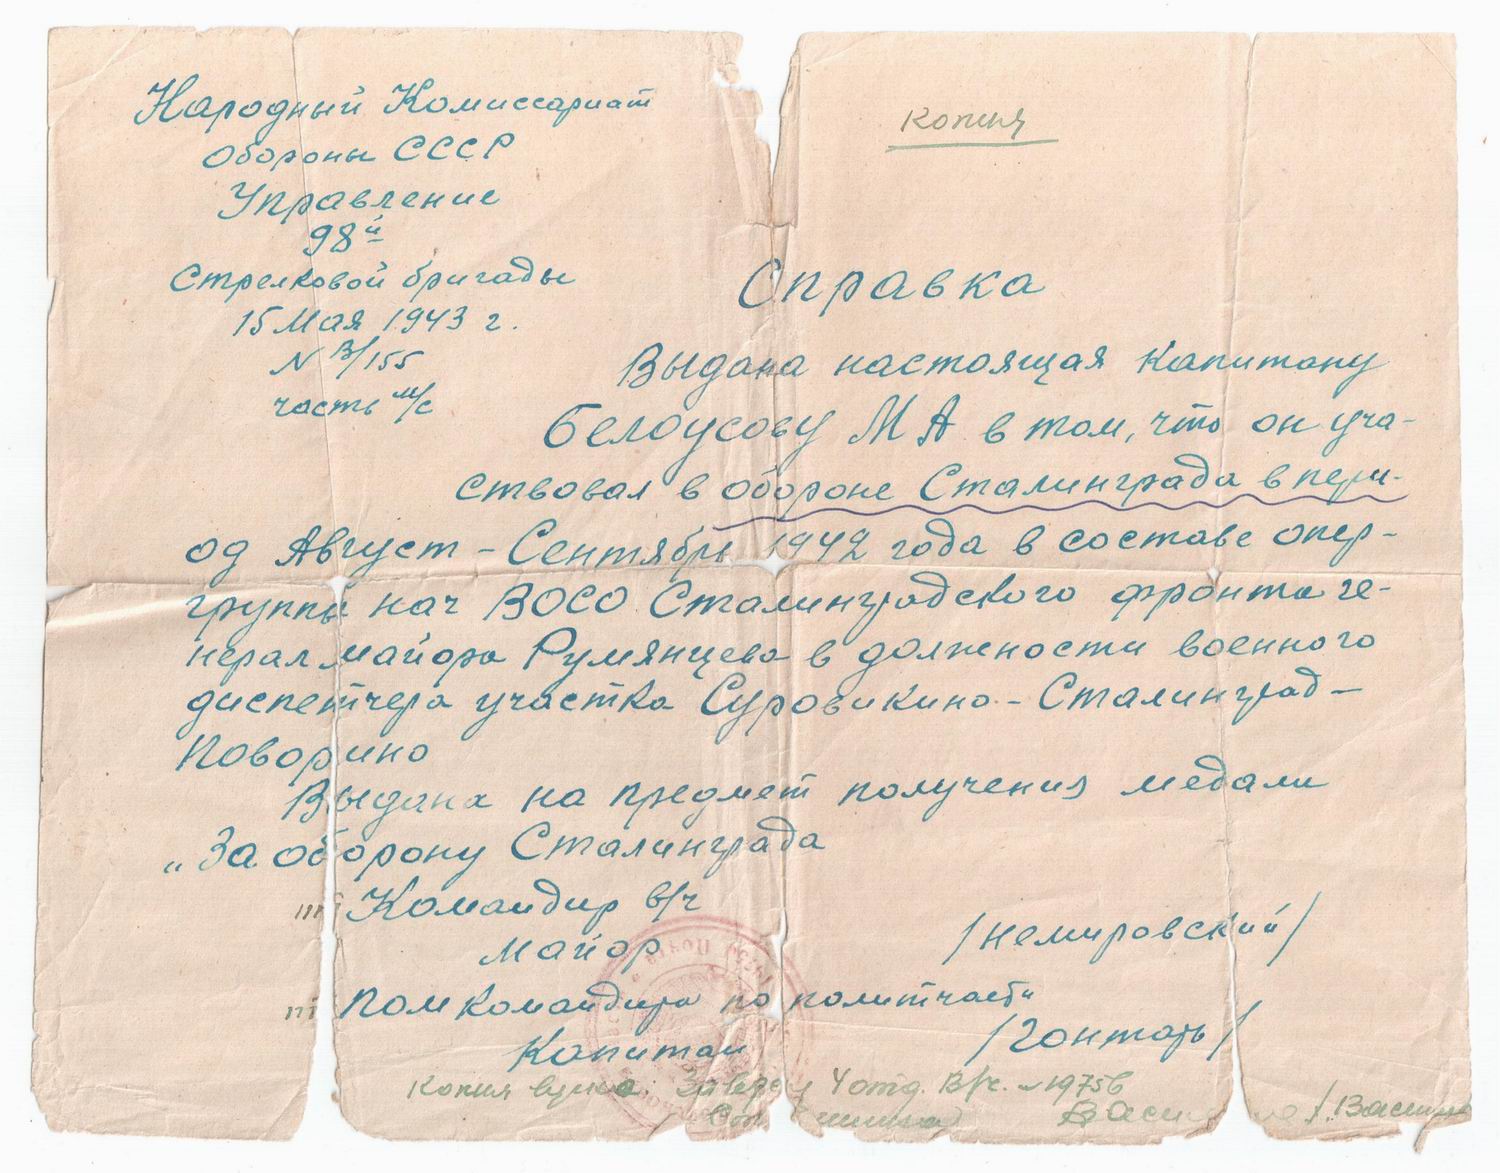 Народный Комиссариат
Обороны СССР
Управление
98й
Стрелковой бригады
15 Мая 1943 г.
N В/155
часть м/с
Копия
Справка
Выдана настоящая Капитану
Белоусову М А в том, что он уча-
ствовал в обороне Сталинграда в пери-
од Август - Сентябрь 1942 года в составе опер-
группы нач ВОСО Сталинградского фронта ге-
нерал майора Румянцева в должности военного
диспетчера участка Суровикино - Сталинград -
Поворино
Выдана на предмет получения медали
„За оборону Сталинграда
Командир в/ч
Майор /Немировский/
Пом Командира по политчасти
Капитан /Гонтарь/
Копия верна: 4 отд. В/ч.